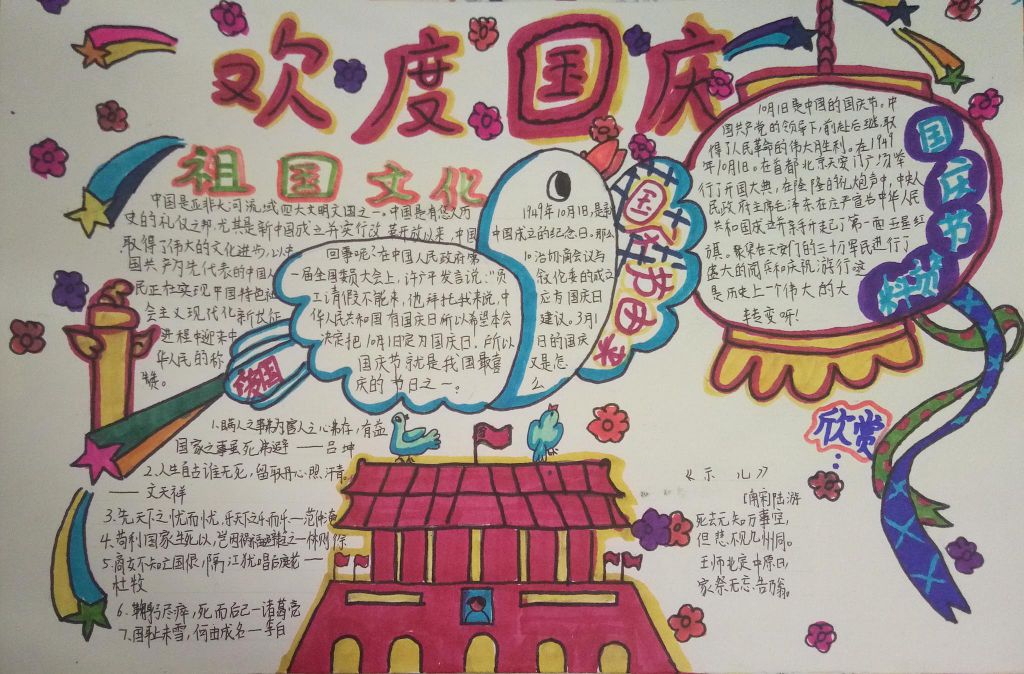 欢度国庆
祖国文化
中国是亚非大河流域四大文明文国之一。中国是有悠久历
史的礼仪之邦尤其是新中国成立并实行改革开放以来,中国
取得了伟大的文化进步,以
国共产为先代表的中国人
民正在实现中国特色社
会主义现代化新长征
进程中迎来中
华人民的称
赞。
祖国
回事呢?在中国人民政府第
一届全国委员大会上,许广平发言说:“员
工请假不能来,他拜托我来说,中
华人民共和国有国庆日所以希望本会
决定把10月1日定为国庆日。所以
国庆节就是我国最喜
庆的节日之一。
1949年10月1日,是新
中国成立的纪念日。那么
治协商会议与
叙化委的成立
应有国庆日
建议。3月1
日的国庆
又是怎
么
国庆节由来
10月1日是中国的国庆节。中
国共产党的领导下,前赴后继,取
得了人民革命的伟大胜利。在1949
年10月1日。在首都北京天安门广场举
行了开国大典,在隆隆的礼炮声中,中央人
民政府主席毛泽东在庄严宣布中华人民
共和国成立并亲手升起了第一面五星红
旗。聚集在天安门的三十万军民进行了
盛大的阅兵和庆祝游行。这
是历史上一个伟大的大
转变呀!
国庆节
欣赏
1.瞒人之事弗为害人之心弗存,有益
国家之事虽死弗避——吕坤
2.人生自古谁无死,留取丹心照汗青。
——文天祥
3.先天下之忧而忧,乐天下之乐而乐—范仲淹
4.苟利国家生死以,岂因祸福避趋之—林则徐
5.商女不知亡国恨,隔江犹唱后庭花—
杜牧
6.鞠躬尽瘁,死而后已—诸葛亮
7.国耻未雪,何由成名—李白
《示儿》
[南宋]陆游
死去无知万事空,
但悲不见九州同。
王师北定中原日,
家祭无忘告乃翁。